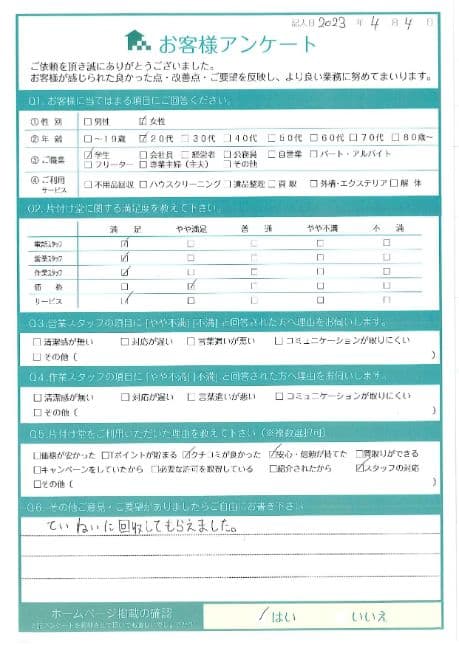 記入日 2023 年 4 月 4 日
お客様アンケート
ご依頼を頂き誠にありがとうございました。
お客様が感じられた良かった点・改善点・ご要望を反映し、より良い業務に努めてまいります。
Q1. お客様に当てはまる項目にご回答ください。
① 性 別 □男性 ☑女性
② 年 齢 □～19歳 ☑20代 □30代 □40代 □50代 □60代 □70代 □80歳～
③ ご職業 ☑学生 □会社員 □経営者 □公務員 □自営業 □パート・アルバイト
□フリーター □専業主婦（主夫） □その他
④ ご利用サービス □不用品回収 □ハウスクリーニング □遺品整理 □買取 □外構・エクステリア □解体
Q2. 片付け堂に関する満足度を教えて下さい。
満 足 やや満足 普 通 やや不満 不 満
電話スタッフ ☑ □ □ □ □
営業スタッフ ☑ □ □ □ □
作業スタッフ ☑ □ □ □ □
価 格 □ ☑ □ □ □
サービス ☑ □ □ □ □
Q3. 営業スタッフの項目に「やや不満」「不満」と回答された方へ理由をお伺いします。
□清潔感が無い □対応が遅い □言葉遣いが悪い □コミュニケーションが取りにくい
□その他（ ）
Q4. 作業スタッフの項目に「やや不満」「不満」と回答された方へ理由をお伺いします。
□清潔感が無い □対応が遅い □言葉遣いが悪い □コミュニケーションが取りにくい
□その他（ ）
Q5. 片付け堂をご利用いただいた理由を教えて下さい（※複数選択可）
□価格が安かった □Tポイントが貯まる ☑クチコミが良かった ☑安心・信頼が持てた □買取りができる
□キャンペーンをしていたから □必要な許可を取得している □紹介されたから ☑スタッフの対応
□その他（ ）
Q6. その他ご意見・ご要望がありましたらご自由にお書き下さい
ていねいに回収してもらえました。
ホームページ掲載の確認
はい いいえ